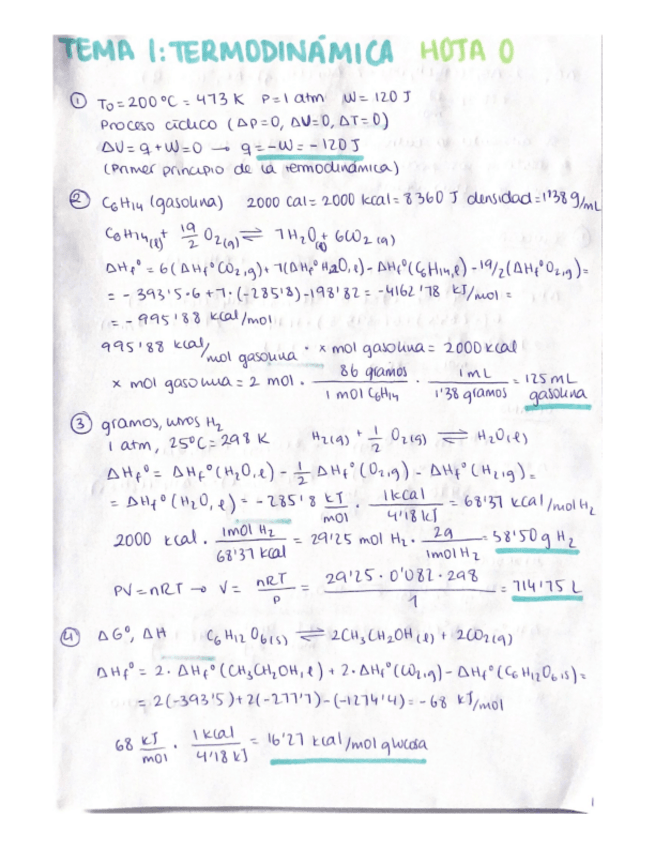 TEMA 1: TERMODINÁMICA HOJA 0
① T₀ = 200 ºC = 473 K P = 1 atm W = 120 J
Proceso cíclico (ΔP=0, ΔU=0, ΔT=0)
ΔU = q + W = 0 → q = -W = -120 J
(Primer principio de la termodinámica)
② C₆H₁₄ (gasolina) 2000 Cal = 2000 kcal = 8360 J densidad = 1'38 g/mL
C₆H₁₄(ℓ) + 19/2 O₂(g) ⇌ 7H₂O(ℓ) + 6CO₂(g)
ΔHf° = 6(ΔHf°CO₂,g) + 7(ΔHf°H₂O,ℓ) - ΔHf°(C₆H₁₄,ℓ) - 19/2(ΔHf°O₂,g) =
= -393'5·6 + 7·(-285'8) - 198'82 = -4162'78 kJ/mol =
= -995'88 kcal/mol
995'88 kcal/mol gasolina · x mol gasolina = 2000 kcal
x mol gasolina = 2 mol · 86 gramos / 1 mol C₆H₁₄ · 1 mL / 1'38 gramos = 125 mL gasolina
③ gramos, litros H₂
1 atm, 25ºC = 298 K H₂(g) + 1/2 O₂(g) ⇌ H₂O(ℓ)
ΔHf° = ΔHf°(H₂O,ℓ) - 1/2 ΔHf°(O₂,g) - ΔHf°(H₂,g) =
= ΔHf°(H₂O,ℓ) = -285'8 kJ/mol · 1kcal/4'18 kJ = 68'37 kcal/mol H₂
2000 kcal · 1mol H₂/68'37 kcal = 29'25 mol H₂ · 2g/1mol H₂ = 58'50 g H₂
PV = nRT → V = nRT/P = 29'25·0'082·298/1 = 714'75 L
④ ΔG°, ΔH C₆H₁₂O₆(s) ⇌ 2CH₃CH₂OH(ℓ) + 2CO₂(g)
ΔHf° = 2·ΔHf°(CH₃CH₂OH,ℓ) + 2·ΔHf°(CO₂,g) - ΔHf°(C₆H₁₂O₆,s) =
= 2(-393'5) + 2(-277'7) - (-1274'4) = -68 kJ/mol
68 kJ/mol · 1kcal/4'18 kJ = 16'27 kcal/mol glucosa
1